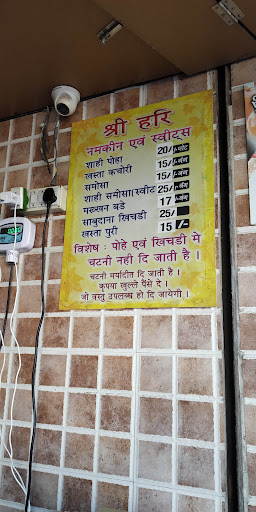 श्री हरि
नमकीन एवं स्वीट्स
शाही पोहा 20/- प्लेट
खस्ता कचौरी 15/- नंग
समोसा 15/- नंग
शाही समोसा (स्वीट 25/- नंग
मख्खन बडे 17 नंग
साबुदाना खिचडी 25/-
खस्ता पुरी 15 /-
विशेष : पोहे एवं खिचडी मे
चटनी नही दि जाती है ।
चटनी मर्यादीत दि जाती है ।
कृपया खुल्ले पैंसे दे ।
जो वस्तु उपलब्ध हो दि जायेगी ।